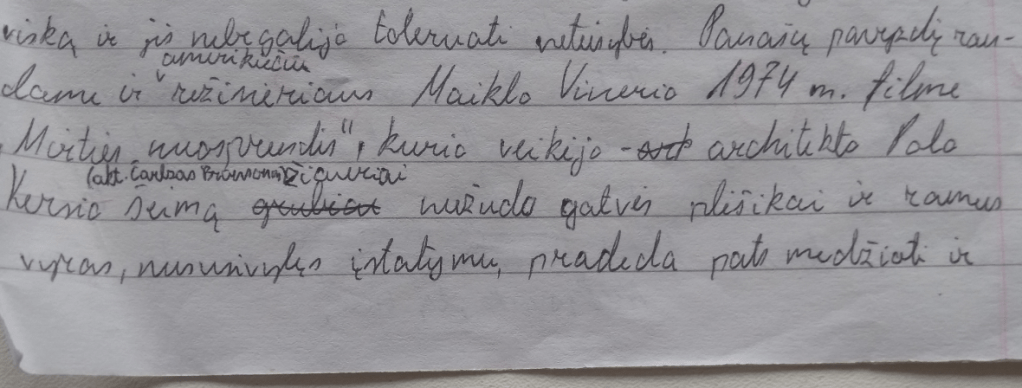 viską ir jis nebegalijo toleruoti neteisybės. Panašų pavyzdį ran-
amerikiečiu
dame ir režisieriaus Maiklo Vinerio 1974 m. filme
„Mirties nuosprendis", kurio veikėjo - architekto Polo
(akt. Čarlzas Bronsonas) žiauriai
Kersio šeimą nužudo gatvės plėšikai ir ramus
vyras, nusivylęs įstatymu, pradeda pats medžioti ir